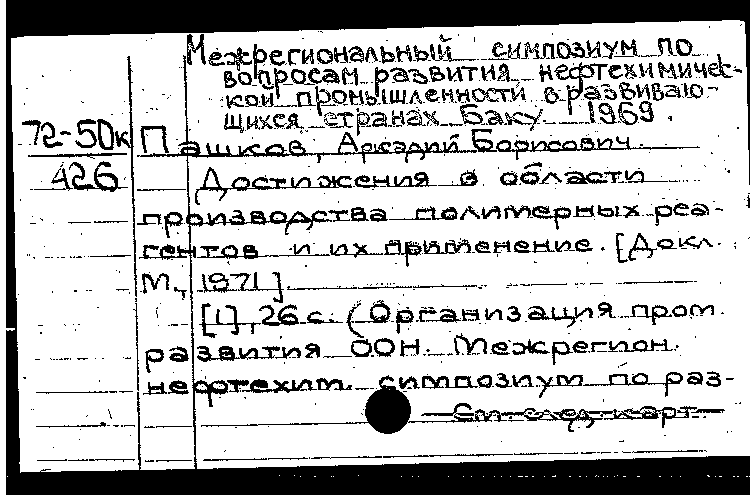 Межрегиональный симпозиум по
вопросам развития нефтехимичес-
кой промышленности в развиваю-
щихся странах Баку 1969.
72-50к
426
Пашков, Аркадий Борисович.
Достижения в области
производства полимерных реа-
гентов и их применение. [Докл.
М., 1971].
[1], 26 с. (Организация пром.
развития ООН. Межрегион.
нефтехим. симпозиум по раз-
См. след. карт.